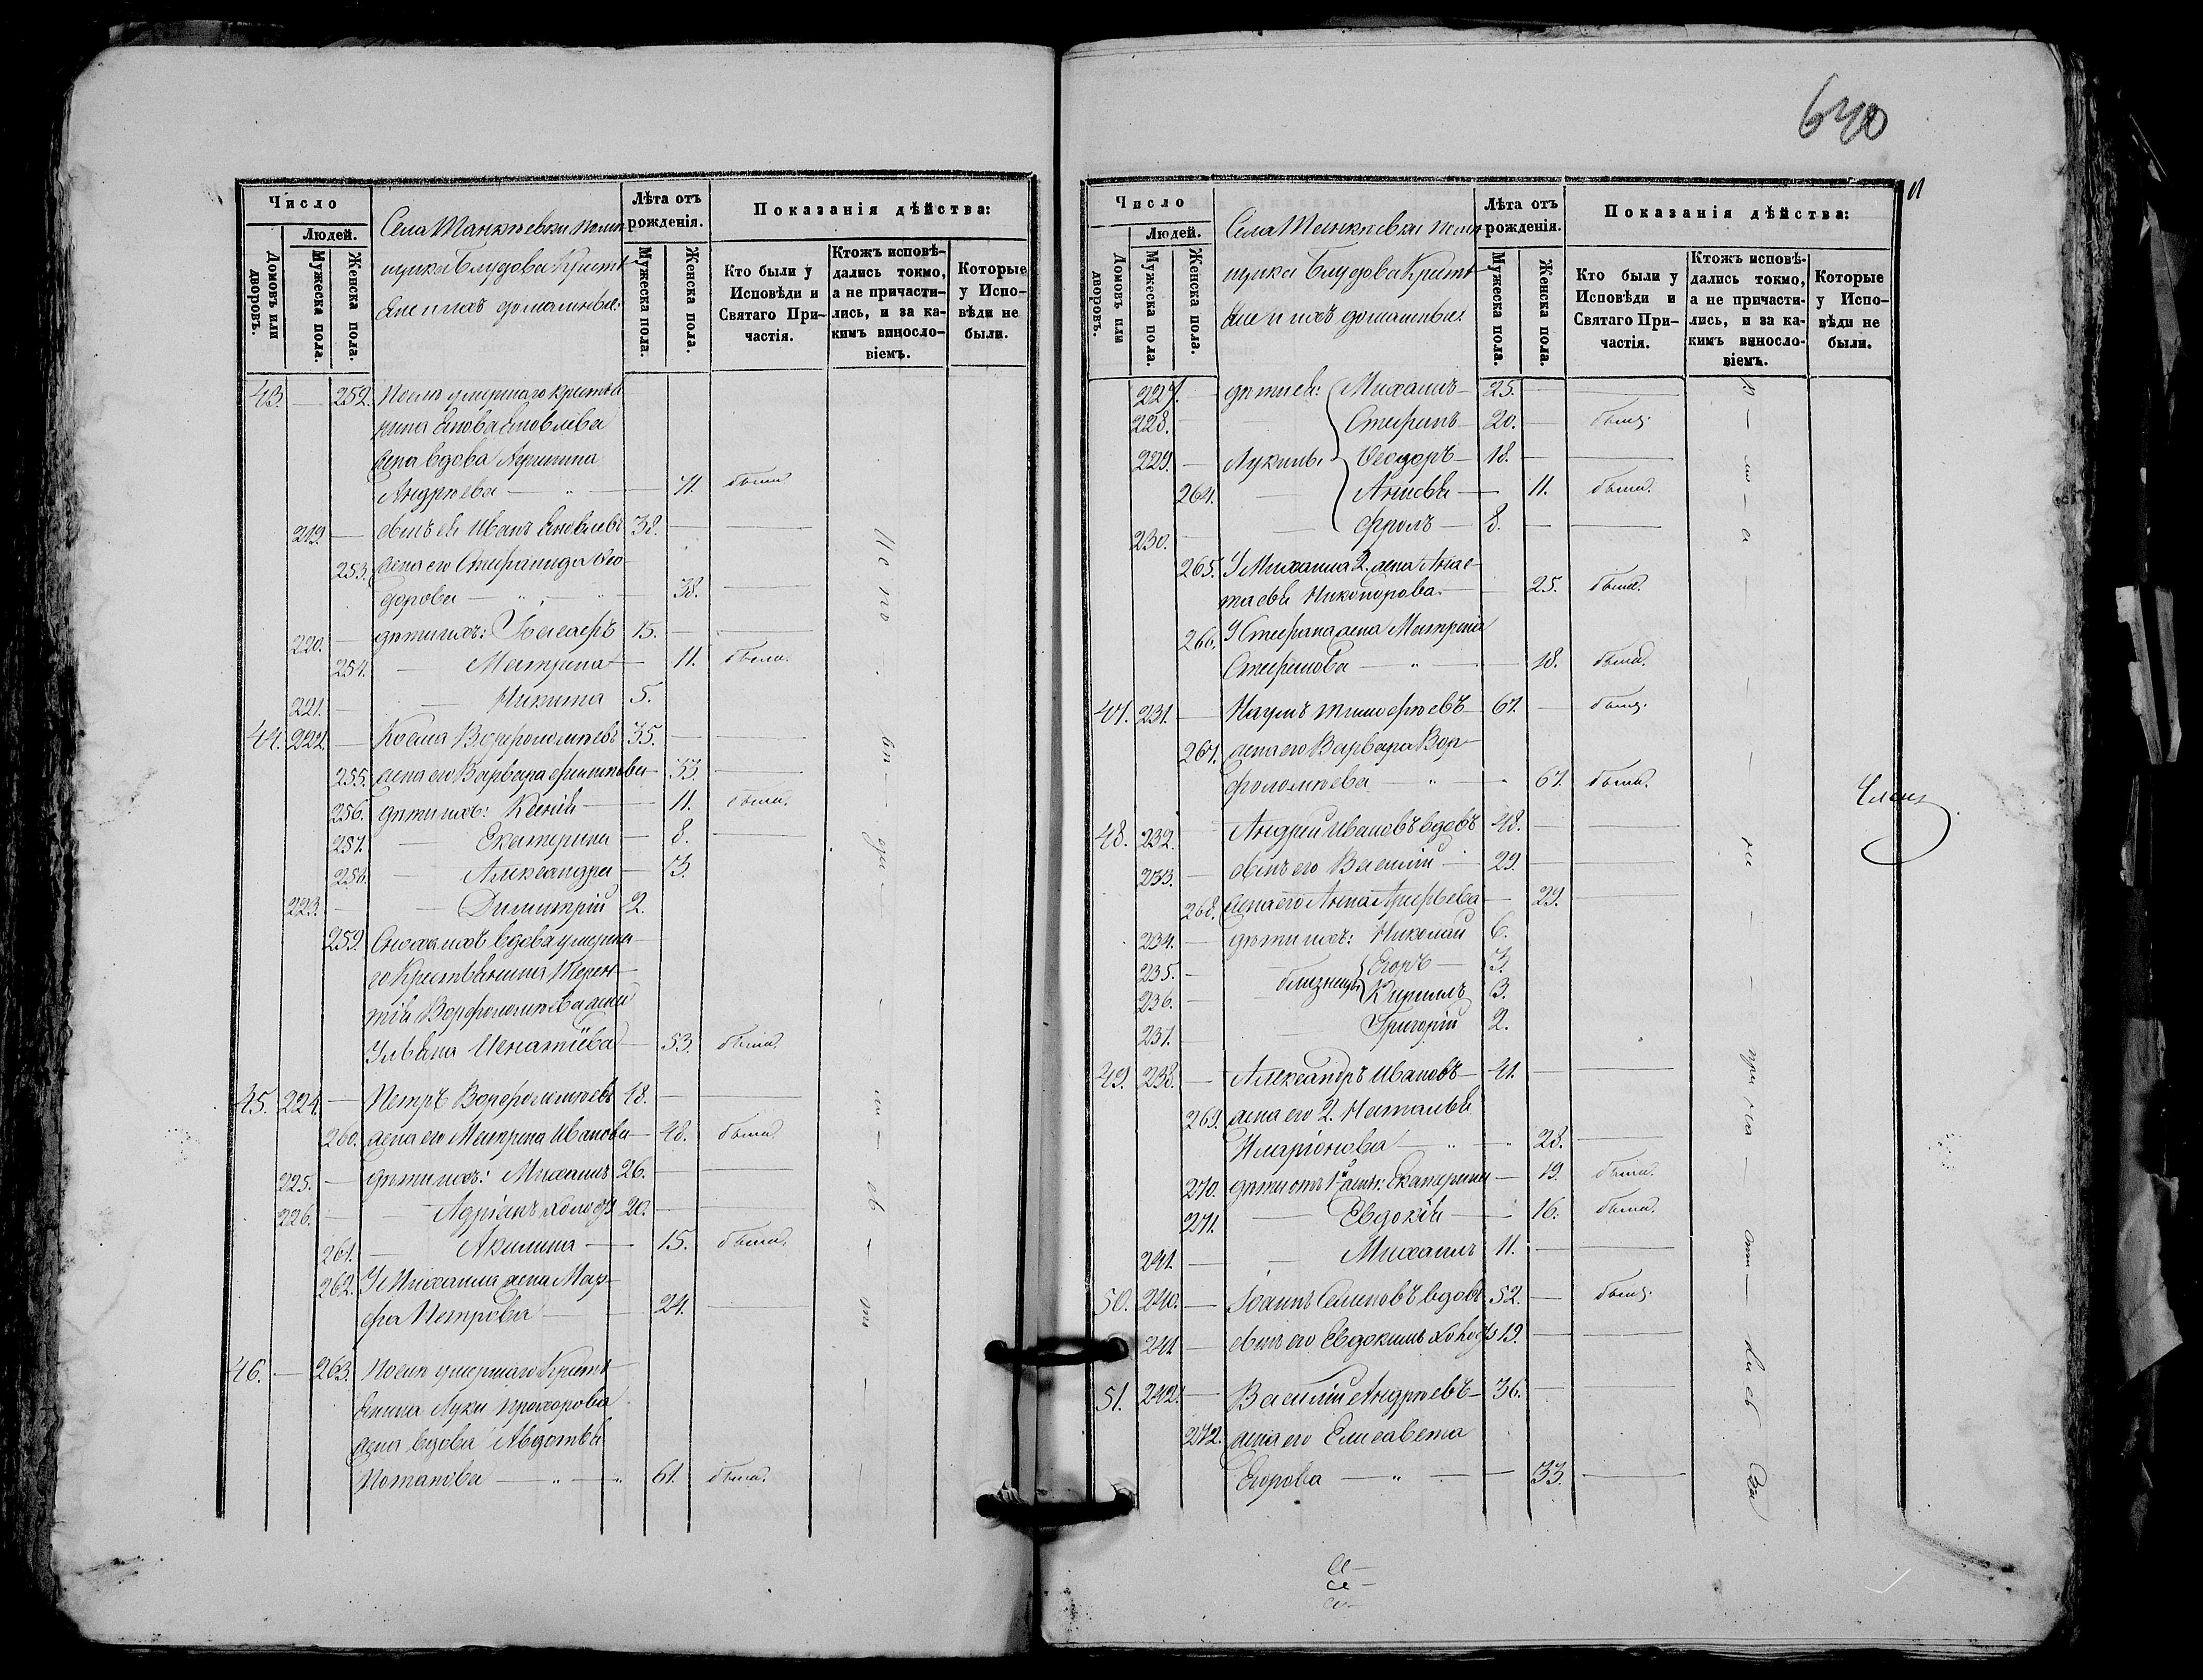 640
Число
Людей.
Домовъ или дворовъ.
Мужеска пола.
Женска пола.
Села Танкѣевки помѣ-
щика Блудова Кресть-
яне и ихъ домашные:
Лѣта отъ рожденія.
Мужеска пола.
Женска пола.
Показанія дѣйства:
Кто были у Исповѣди и Святаго При-частія.
Ктожъ исповѣ-дались токмо, а не причасти-лись, и за ка-кимъ винослo-віемъ.
Которые у Испо-вѣди не были.
43. — 252. Послѣ умершаго крестья
нина Якова Яковлева
жена вдова Агрипина
Андрѣева — 71. была
219. — сынъ ея Иванъ Яковлевъ 38. —
253. жена его Стефанида Ѳео-
дорова — 38. —
220. — дѣти ихъ: Іоасафъ 15. —
254. — Матрона — 11. была.
221. — Никита 5.
44. 222. — Косма Варфоломѣевъ 35. —
255. жена его Варвара Филипова — 33. —
256. дѣти ихъ: Ксенія — 11. была.
257. — Екатерина — 8. —
258. — Александра — 3.
223. — Димитрій 2.
259. Сноха ихъ вдова умерша-
го крестьянина Терен-
тія Варфоломѣева жена
Ульяна Игнатіева — 53. была.
45. 224. — Петръ Варфоломѣевъ 48. —
260. жена его Матрона Иванова — 48. была.
225. — дѣти ихъ: Михаилъ 26. —
226. — Адріанъ холостъ 20. —
261. — Акилина — 15. была.
262. У Михаила жена Мар-
фа Петрова — 24. —
46. — 263. Послѣ умершаго Кресть-
янина Луки Прохорова
жена вдова Авдотья
Потапова — 61. была.
Число
Людей.
Домовъ или дворовъ.
Мужеска пола.
Женска пола.
Села Танкѣевки помѣ-
щика Блудова Кресть-
яне и ихъ домашные:
Лѣта отъ рожденія.
Мужеска пола.
Женска пола.
Показанія дѣйства:
Кто были у Исповѣди и Святаго При-частія.
Ктожъ исповѣ-дались токмо, а не причасти-лись, и за ка-кимъ винослo-віемъ.
Которые у Испо-вѣди не были.
227. — дѣти ея: Михаилъ — 25. —
228. — Стефанъ — 20. — былъ.
229. — Лукины Ѳеодоръ — 18. —
264. — Анисья — 11. была.
230. — Фролъ — 8. —
265. У Михаила 2. жена Анас-
тасья Никонорова — 25. была.
266. У Стефана жена Матрона
Стефанова — 18. была.
47. 231. — Наумъ Тимофѣевъ 67. — былъ.
267. жена его Варвара Вар-
фоломѣева — 67. была.
48. 232. Андрей Ивановъ вдовъ 48. —
233. — сынъ его Василій — 29. —
268. жена его Анна Арефьева — 29. —
234. — дѣти ихъ: Николай 6.
235. — близнецы Егоръ — 3.
236. — Кирилъ 3.
237. — Григорій 2.
49. 238. — Александръ Ивановъ — 41. —
269. жена его 2. Наталья
Иларіонова — 28. —
270. дѣти отъ 1й жены: Екатерина — 19. была.
271. — Евдокія — 16. была.
241. — Михаилъ 11. —
50. 240. — Іоаннъ Семеновъ вдовъ 52. — былъ.
241 — сынъ его Евдокимъ холостъ 19. —
51. 242. — Василій Андрѣевъ — 36. —
272. жена его Елисавета
Егорова — 33. —